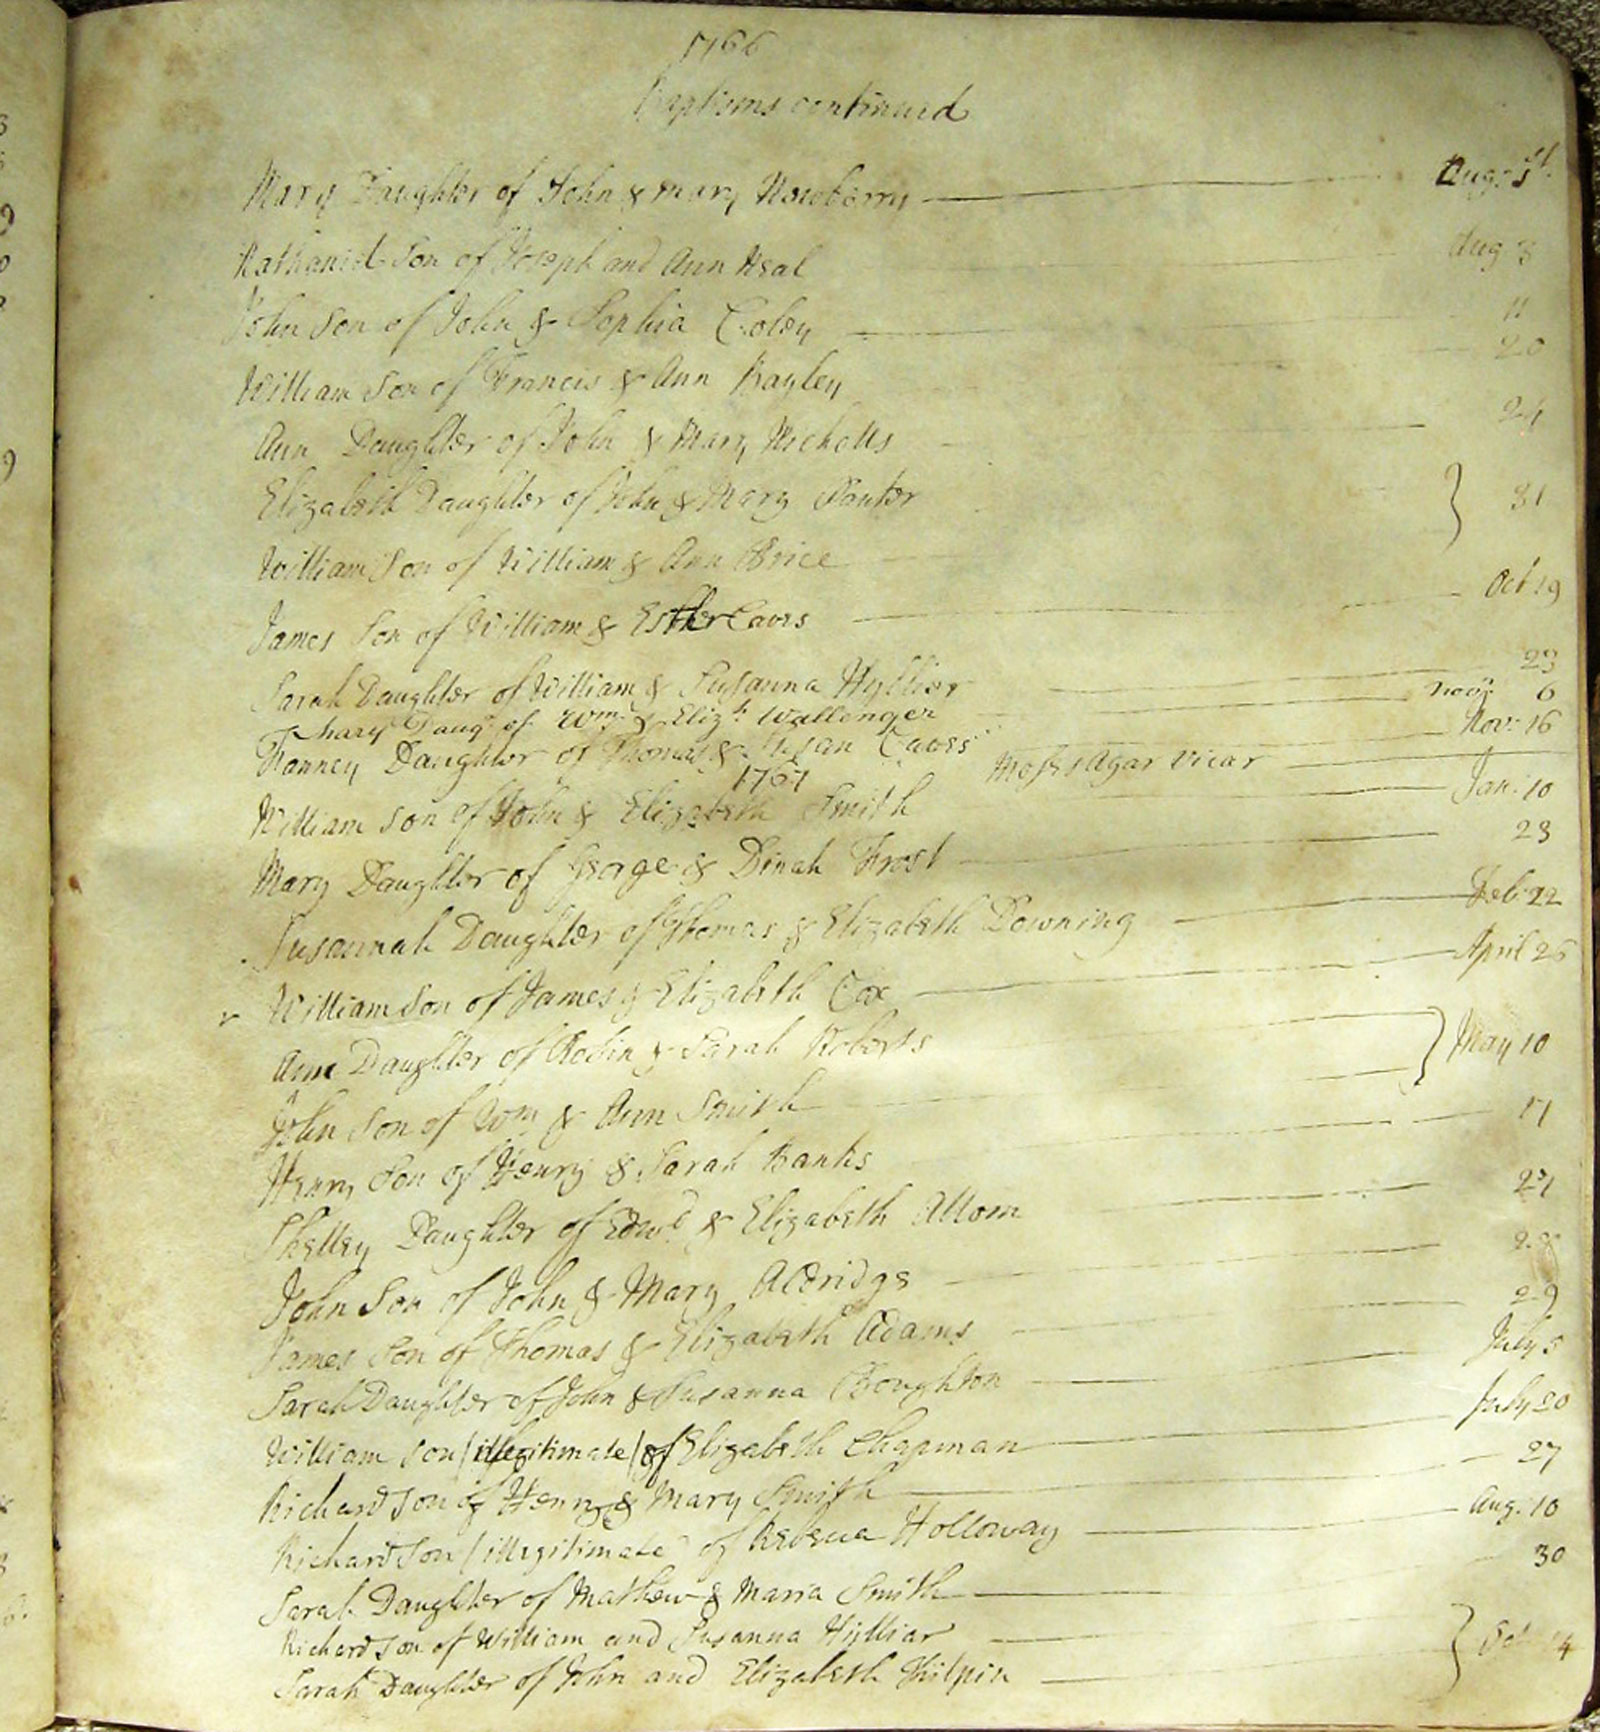 1766
Baptisms continued
Mary Daughter of John & Mary Newberry Aug: 1st.
Nathaniel Son of Joseph and Ann Neal Aug 3
John Son of John & Sophia Coley 11
William Son of Francis & Ann Bayley 20
Ann Daughter of John & Mary Nicholls 24
Elizabeth Daughter of John & Mary Panter } 31
William Son of William & Ann Price
James Son of William & Esther Caves Oct 19
Sarah Daughter of William & Susanna Hyllier 23
Mary Daugr. of Wm. & Elizh. Wallenger Novr. 6
Fanney Daughter of Thomas & Susan Caves Nov: 16
Moses Agar Vicar
1767
William Son of John & Elizabeth Smith Jan: 10
Mary Daughter of George & Dinah Frost 23
Susannah Daughter of Thomas & Elizabeth Downing Feb: 22
William Son of James & Elizabeth Cox April 26
Ann Daughter of Robin & Sarah Roberts } May 10
John Son of Wm & Ann Smith
Henry Son of Henry & Sarah Banks 17
Shelley Daughter of Edwd & Elizabeth Allom 27
John Son of John & Mary Aldridge
James Son of Thomas & Elizabeth Adams 29
Sarah Daughter of John & Susanna Boughton July 5
William Son / illegitimate / of Elizabeth Chapman July 20
Richard Son of Henry & Mary Smith 27
Richard Son / illegitimate of Holloway Aug: 10
Sarah Daughter of Mathew & Maria Smith 30
Richard Son of William and Susanna Hilliar } Oct
Sarah Daughter of John and Elizabeth Kilpin